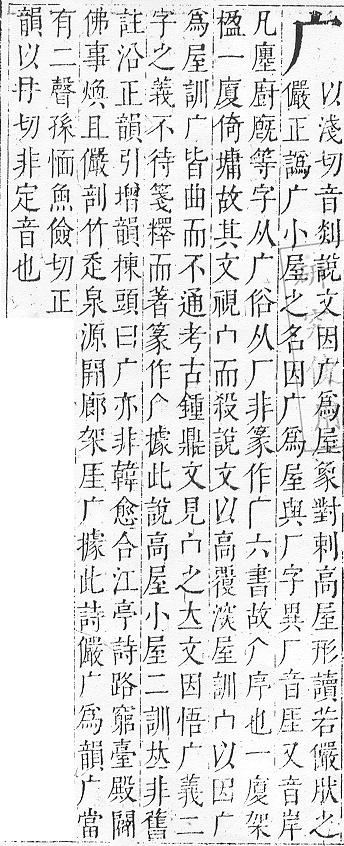 广
以淺切音剡說文因广爲屋象對刺高屋形讀若儼肰之
儼正譌广小屋之名因广爲屋與厂字異厂音厓又音岸
凡廛廚廐等字从广俗从厂非篆作广六書故也一廈架
楹一廈倚墉故其文視宀而殺說文以高覆㴱屋訓宀以因广
爲屋訓广皆曲而不通考古鍾鼎文見宀之文因悟广義二
字之義不待箋釋而著篆作據此說高屋小屋二訓𠀤非舊
註沿正韻引增韻棟頭曰广亦非韓愈合江亭詩路窮臺殿闢
佛事煥且儼剖竹走泉源開廊架厓广據此詩儼广爲韻广當
有二聲孫愐魚儉切正
韻以冄切非定音也